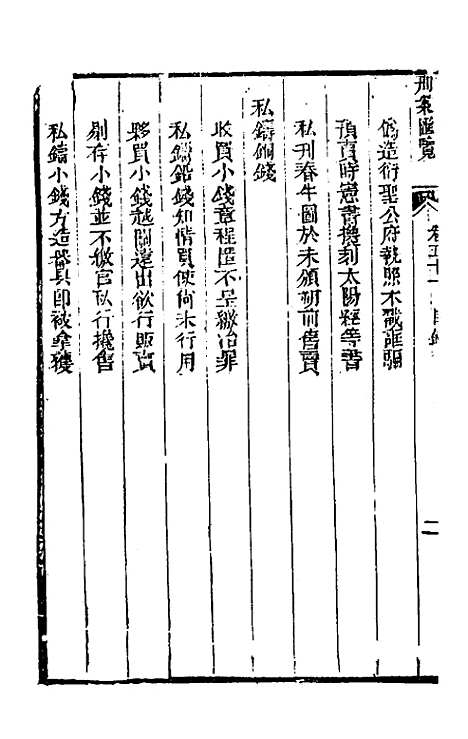 刑案匯覽 卷五十一 目錄 二
僞造衍聖公府執照木戳誆騙
預賣時憲書攙刻太陽經等書
私刊春牛圖於未頒朔前售賣
私鑄銅錢
收買小錢章程匿不呈繳治罪
私鑄鉛錢知情買使尚未行用
夥買小錢越關遠出欲行販賣
剔存小錢並不繳官私行攙售
私鑄小錢方造器具即被拿獲